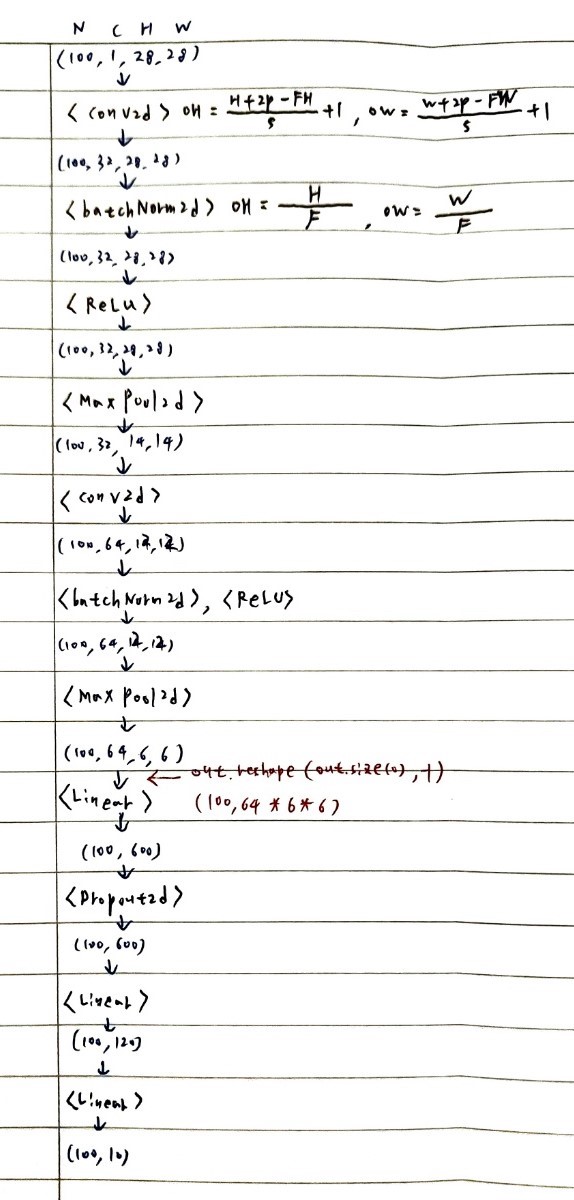 N C H W
(100, 1, 28, 28)
↓
<conv2d> OH = (H+2p-FH)/s +1, OW = (W+2p-FW)/s +1
↓
(100, 32, 28, 28)
↓
<batchNorm2d> OH = H/F, OW = W/F
↓
(100, 32, 28, 28)
↓
<ReLU>
↓
(100, 32, 28, 28)
↓
<Max Pool2d>
↓
(100, 32, 14, 14)
↓
<conv2d>
↓
(100, 64, 12, 12)
↓
<batchNorm2d>, <ReLU>
↓
(100, 64, 12, 12)
↓
<Max Pool2d>
↓
(100, 64, 6, 6)
↓ ← out.reshape (out.size(0), -1)
<Linear> (100, 64 * 6 * 6)
↓
(100, 600)
↓
<Dropout2d>
↓
(100, 600)
↓
<Linear>
↓
(100, 120)
↓
<Linear>
↓
(100, 10)